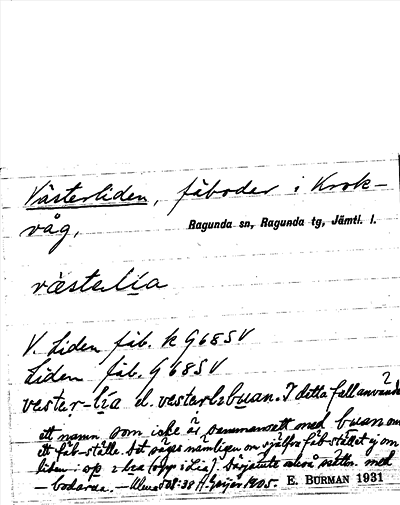 Västerliden, fäboder i Krok-
våg,
Ragunda sn, Ragunda tg, Jämtl. l.
væstelía
V. Liden fäb. k G68SV
Liden fäb. G68SV
vester-lía el. vesterlibuan. I detta fall använda
ett namn som icke är sammansatt med buan om
ett fäb-ställe. Det säges nämligen om själfva fäb-stället ej om
liden: op i lia (opp i Lia). Särjstute också sätten. med
- bodarna. - Ulma 508:38 H. Geijer 1905. E. BURMAN 1931